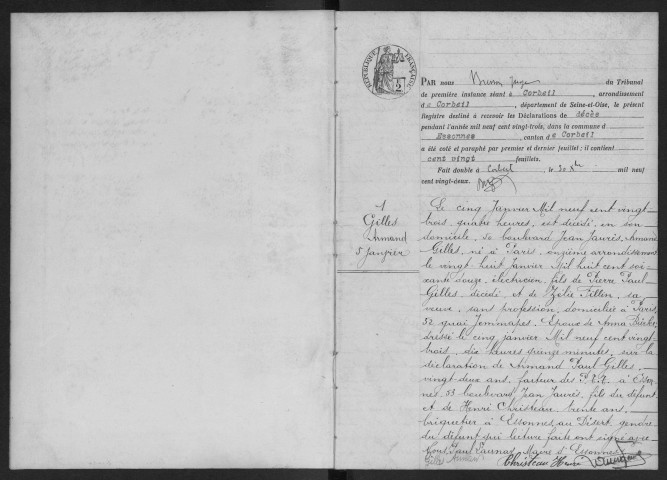 RÉPUBLIQUE FRANÇAISE
PAR nous Juge du Tribunal
de première instance séant à Corbeil, arrondissement
de Corbeil, département de Seine-et-Oise, le présent
Registre destiné à recevoir les Déclarations de décès
pendant l'année mil neuf cent vingt-trois, dans la commune d
Essonnes, canton de Corbeil
a été coté et paraphé par premier et dernier feuillet; il contient
cent vingt feuillets.
Fait double à Corbeil, le 30 Xbre mil neuf
cent vingt-deux.
1
Gilles
Armand
5 Janvier
Le cinq Janvier Mil neuf cent vingt-
trois, quatre heures, est décédé, en son
domicile, boulevard Jean Jaurès, Armand
Gilles, né à Paris, onzième arrondissement
le vingt huit Janvier Mil huit cent soi-
xante douze, électricien, fils de Pierre Paul
Gilles, décédé, et de Zélie Fillin, sa
veuve, sans profession, domiciliée à Paris,
52 quai Jemmapes. Epoux de Anna
dressé le cinq janvier Mil neuf cent vingt-
trois, dix heures quinze minutes, sur la
déclaration de Armand Paul Gilles,
vingt-deux ans, facteur des à Esson-
nes, 53 boulevard Jean Jaurès, fils du défunt
et de Henri Christeau, trente ans,
briquetier à Essonnes, au Désert, gendre
du défunt qui lecture faite ont signé avec
Nous, Maire d'Essonnes
Gilles Christeau Henri